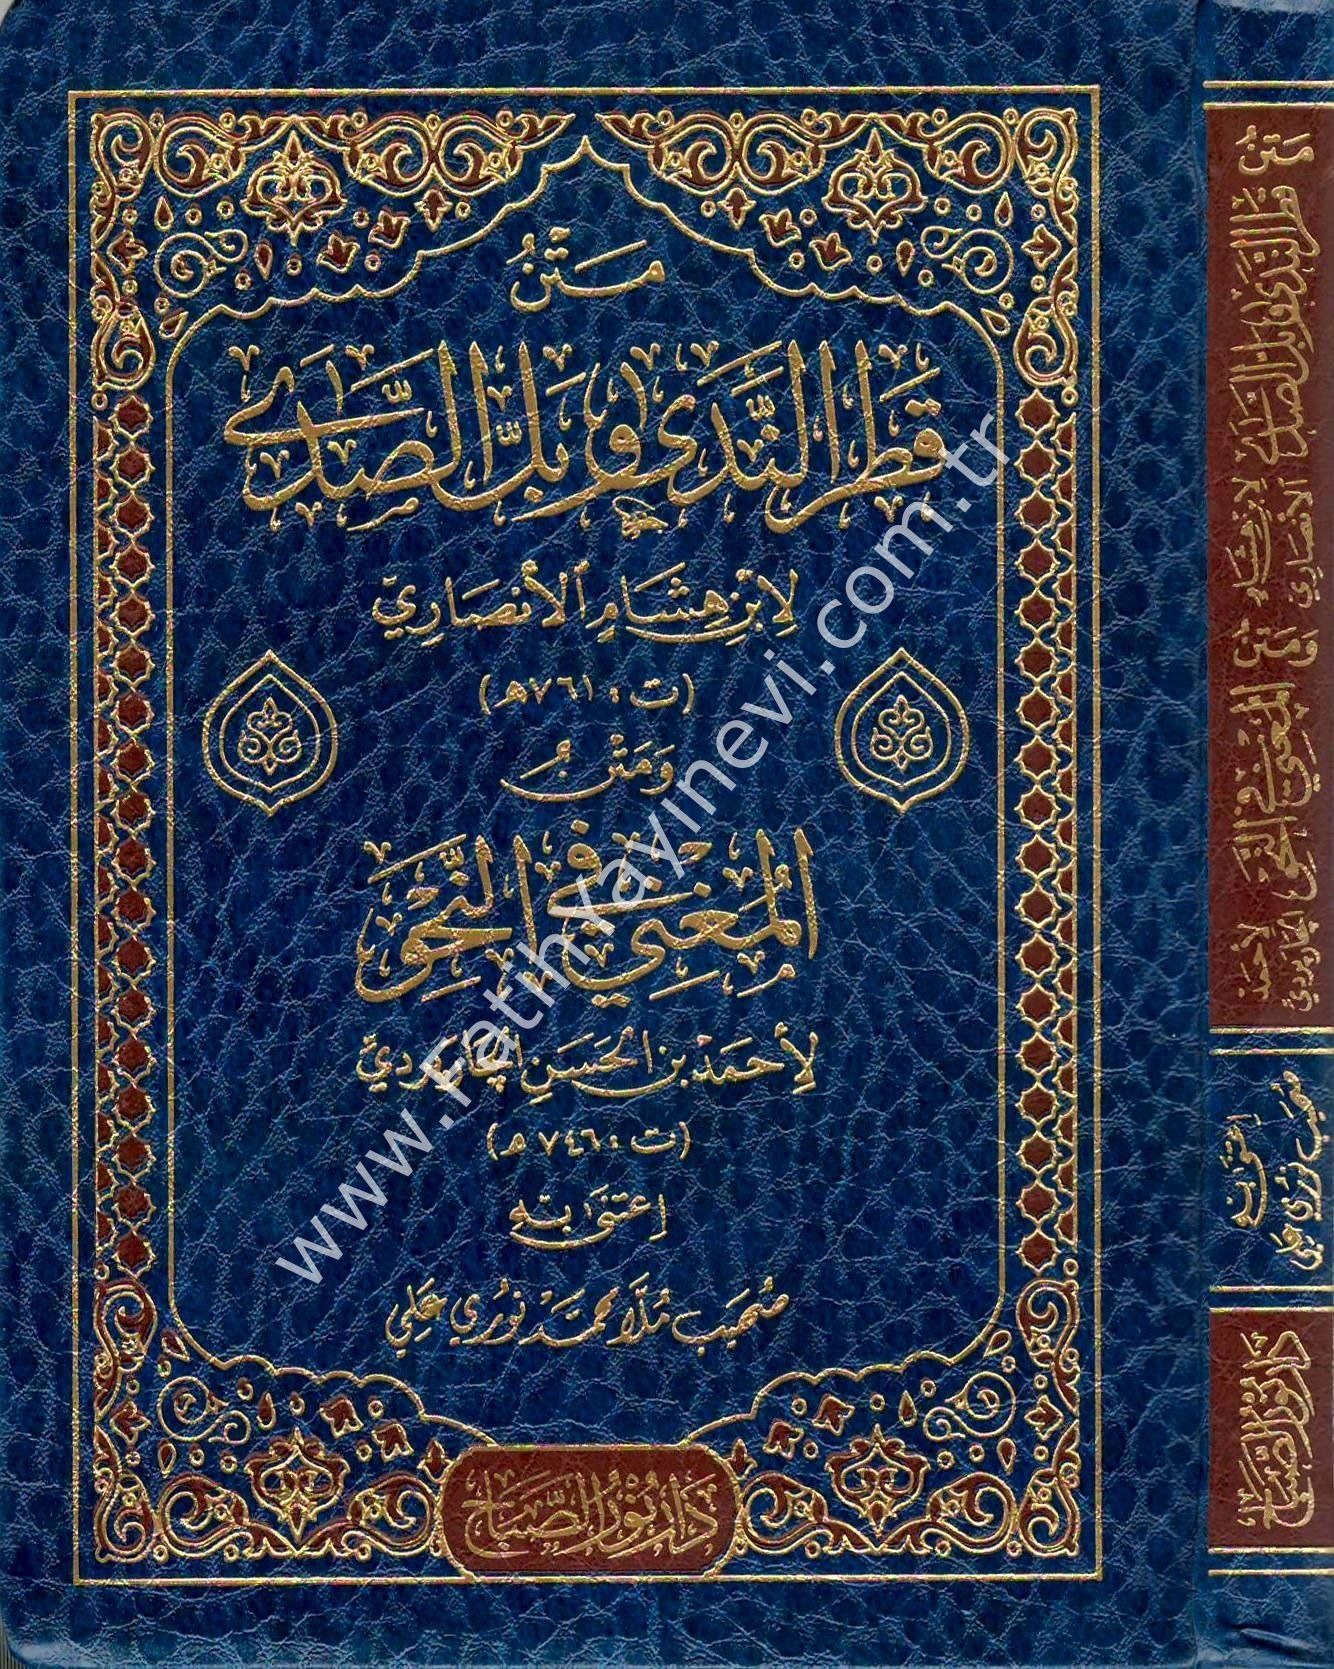 مَتْنُ
قَطْرِ النَّدَى وَبَلِّ الصَّدَى
لِابْنِ هِشَامِ الْأَنْصَارِيّ
(ت: ٧٦١هـ)
وَمَتْنُ
الْمُغْنِي فِي النَّحْوِ
لِأَحْمَدَ بْنِ الْحَسَنِ الْجَارَبَرْدِيّ
(ت: ٧٤٦هـ)
اِعْتَنَى بِهِ
صُهَيْب مُلَّا مُحَمَّد نُورِي عَلِي
دَارُ نُورِ الصَّبَاحِ
www.FatihYayinevi.com.tr
مَتْنُ قَطْرِ النَّدَى وَبَلِّ الصَّدَى لِابْنِ هِشَام الأنصاري وَمَتْنُ الْمُغْنِي فِي النَّحْوِ لِأَحْمَدَ الجاربردي
اعتنى به
صهيب نوري علي
دَارُ نُورِ الصَّبَاحِ